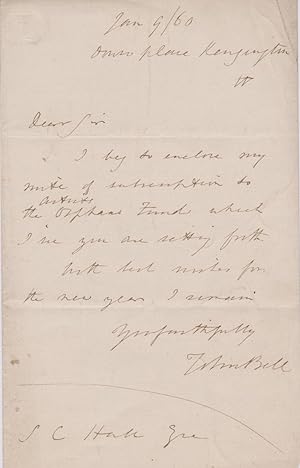 Jan 9/60
Douro place Kensington
W
Dear Sir
I beg to enclose my
mite of subscription to
artists
the Orphans Fund which
I see you are setting forth
with best wishes for
the new year I remain
Yrs faithfully
John Bell
S C Hall Esq